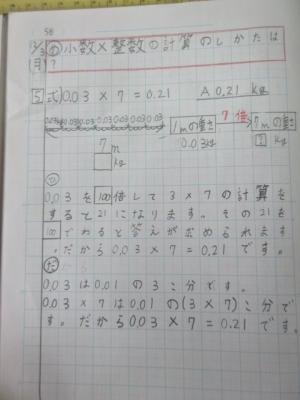 58
12/3 め 小数×整数の計算のしかたは
(月) ?
5 式)0.03×7=0.21 A 0.21 kg
0.03 0.03 0.03 0.03 0.03 0.03 0.03
7m
□kg
1mの重さ 7倍 7mの重さ
0.03kg □kg
つ
0.03を100倍して3×7の計算を
すると21になります。その21を
100でわると答えが求められます
。だから0.03×7=0.21です。
だ
0.03は0.01の3こ分です。
0.03×7は0.01の(3×7)こ分で
す。だから0.03×7=0.21です。